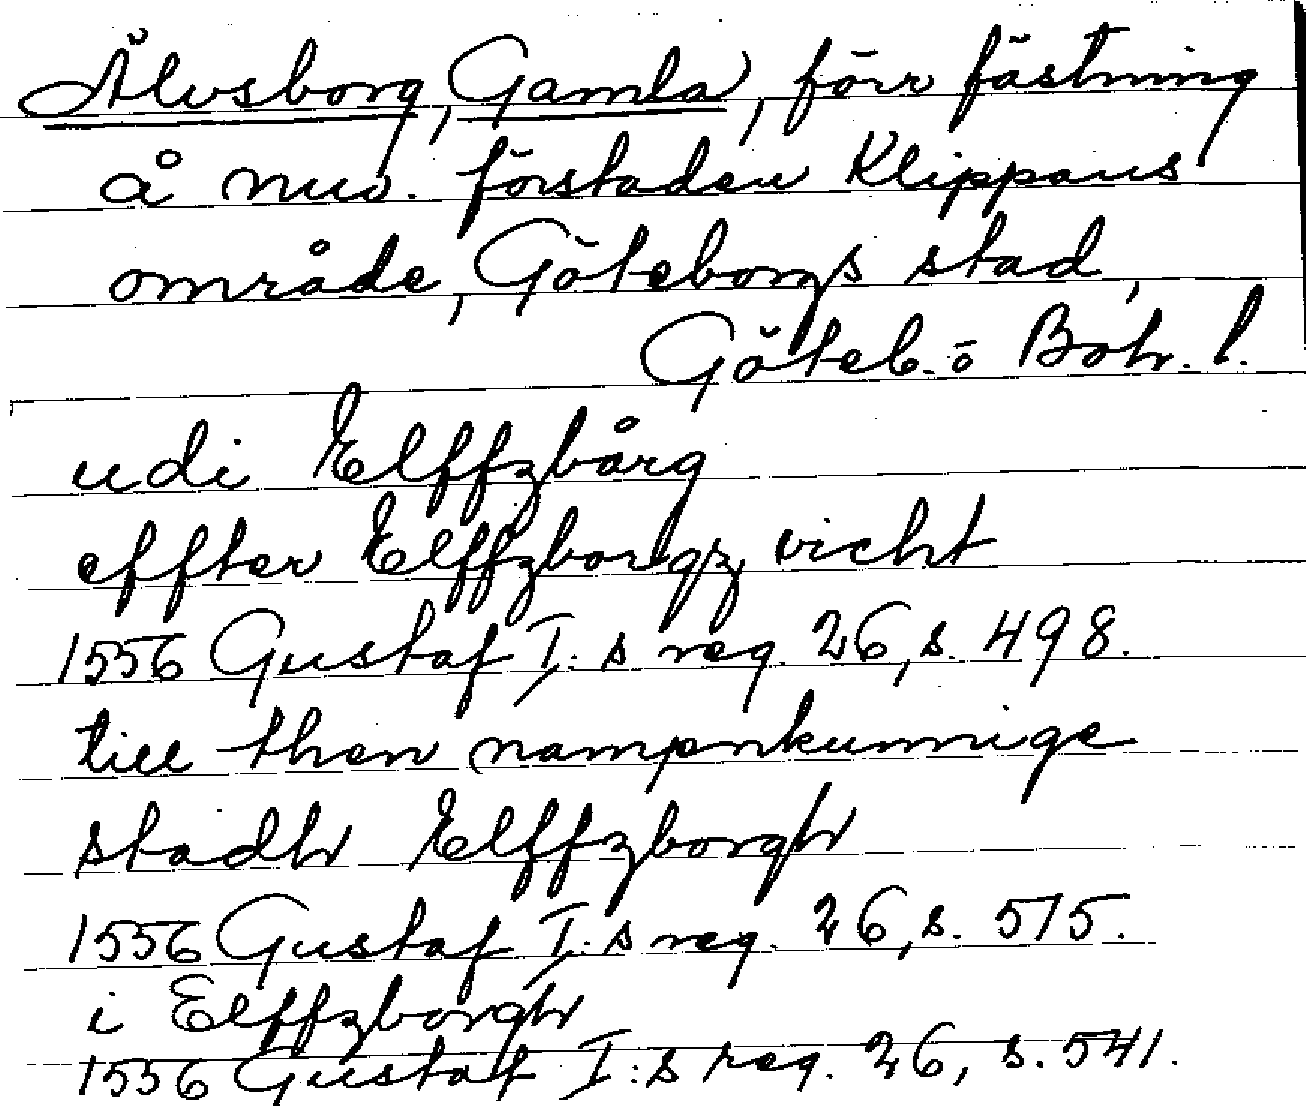 Älvsborg, Gamla, förr fästning
å nuv. förstaden Klippans
område, Göteborgs stad,
Göteb. o Boh. l.
udi Elffzbårg
effter Elffzborgz vicht
1556 Gustaf I:s reg. 26, s. 498.
till then nampnkunnige
stadh Elffzborgh
1556 Gustaf I:s reg. 26, s. 515.
i Elffzborgh
1556 Gustaf I:s reg. 26, s. 541.